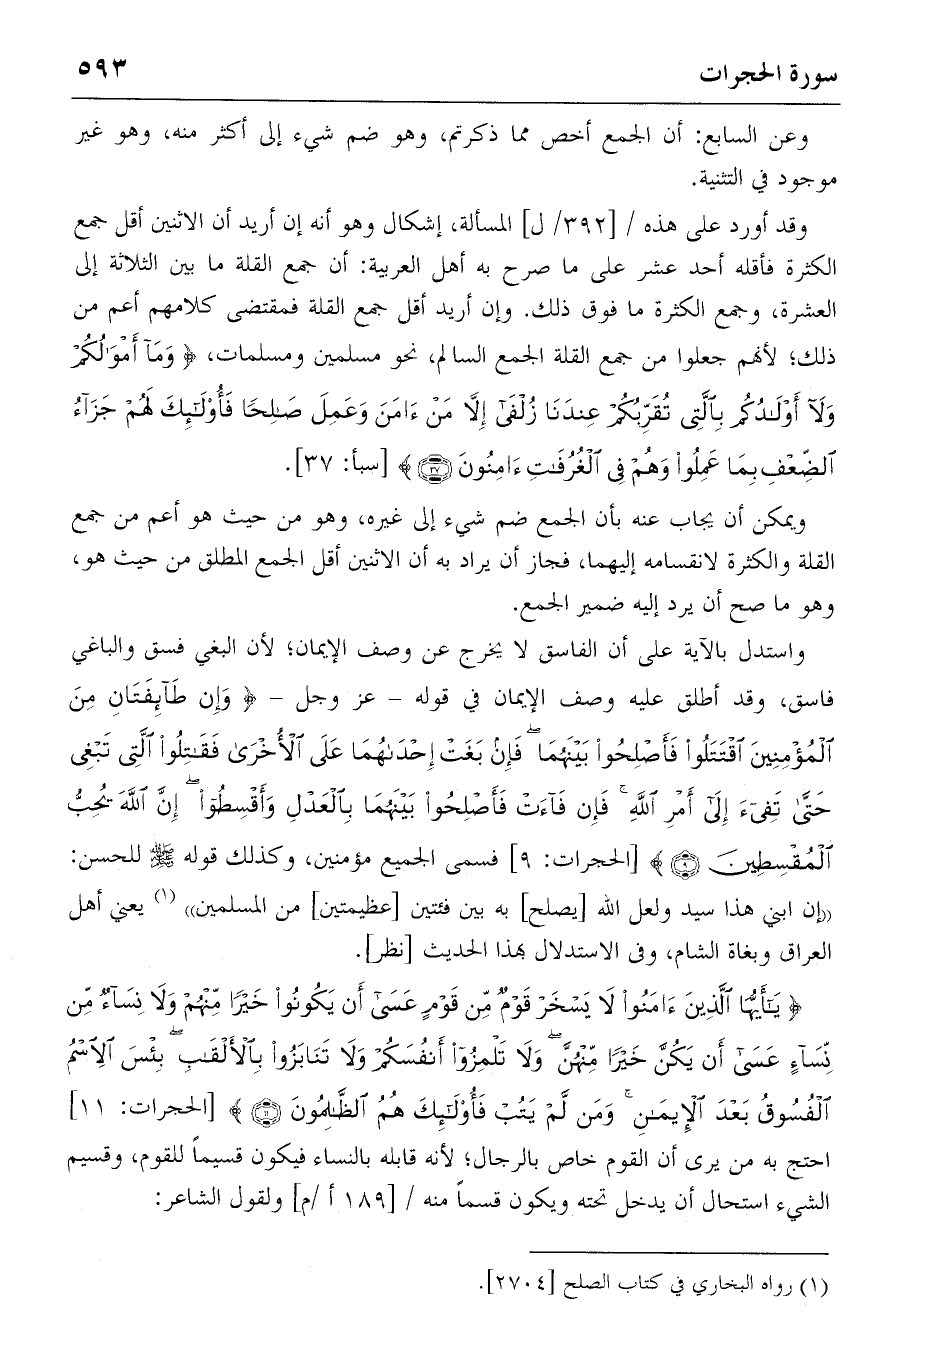 سورة الحجرات
٥٩٣
وعن السابع: أن الجمع أخص مما ذكرتم، وهو ضم شيء إلى أكثر منه، وهو غير
موجود في التثنية.
وقد أورد على هذه / [٣٩٢/ ل] المسألة، إشكال وهو أنه إن أريد أن الاثنين أقل جمع
الكثرة فأقله أحد عشر على ما صرح به أهل العربية: أن جمع القلة ما بين الثلاثة إلى
العشرة، وجمع الكثرة ما فوق ذلك. وإن أريد أقل جمع القلة فمقتضى كلامهم أعم من
ذلك؛ لأنهم جعلوا من جمع القلة الجمع السالم، نحو مسلمين ومسلمات، ﴿ وَمَآ أَمْوَٰلُكُمْ
وَلَآ أَوْلَـٰدُكُم بِٱلَّتِى تُقَرِّبُكُمْ عِندَنَا زُلْفَىٰٓ إِلَّا مَنْ ءَامَنَ وَعَمِلَ صَـٰلِحًا فَأُو۟لَـٰٓئِكَ لَهُمْ جَزَآءُ
ٱلضِّعْفِ بِمَا عَمِلُوا۟ وَهُمْ فِى ٱلْغُرُفَـٰتِ ءَامِنُونَ ۝٣٧ ﴾ [سبأ: ٣٧].
ويمكن أن يجاب عنه بأن الجمع ضم شيء إلى غيره، وهو من حيث هو أعم من جمع
القلة والكثرة لانقسامه إليهما، فجاز أن يراد به أن الاثنين أقل الجمع المطلق من حيث هو،
وهو ما صح أن يرد إليه ضمير الجمع.
واستدل بالآية على أن الفاسق لا يخرج عن وصف الإيمان؛ لأن البغي فسق والباغي
فاسق، وقد أطلق عليه وصف الإيمان في قوله – عز وجل – ﴿ وَإِن طَآئِفَتَانِ مِنَ
ٱلْمُؤْمِنِينَ ٱقْتَتَلُوا۟ فَأَصْلِحُوا۟ بَيْنَهُمَا ۖ فَإِنۢ بَغَتْ إِحْدَىٰهُمَا عَلَى ٱلْأُخْرَىٰ فَقَـٰتِلُوا۟ ٱلَّتِى تَبْغِى
حَتَّىٰ تَفِىٓءَ إِلَىٰٓ أَمْرِ ٱللَّهِ ۚ فَإِن فَآءَتْ فَأَصْلِحُوا۟ بَيْنَهُمَا بِٱلْعَدْلِ وَأَقْسِطُوٓا۟ ۖ إِنَّ ٱللَّهَ يُحِبُّ
ٱلْمُقْسِطِينَ ۝٩ ﴾ [الحجرات: ٩] فسمى الجميع مؤمنين، وكذلك قوله ﷺ للحسن:
((إن ابني هذا سيد ولعل الله [يصلح] به بين فئتين [عظيمتين] من المسلمين)) (١) يعني أهل
العراق وبغاة الشام، وفى الاستدلال بهذا الحديث [نظر].
﴿ يَـٰٓأَيُّهَا ٱلَّذِينَ ءَامَنُوا۟ لَا يَسْخَرْ قَوْمٌ مِّن قَوْمٍ عَسَىٰٓ أَن يَكُونُوا۟ خَيْرًا مِّنْهُمْ وَلَا نِسَآءٌ مِّن
نِّسَآءٍ عَسَىٰٓ أَن يَكُنَّ خَيْرًا مِّنْهُنَّ ۖ وَلَا تَلْمِزُوٓا۟ أَنفُسَكُمْ وَلَا تَنَابَزُوا۟ بِٱلْأَلْقَـٰبِ ۖ بِئْسَ ٱلِٱسْمُ
ٱلْفُسُوقُ بَعْدَ ٱلْإِيمَـٰنِ ۚ وَمَن لَّمْ يَتُبْ فَأُو۟لَـٰٓئِكَ هُمُ ٱلظَّـٰلِمُونَ ۝١١ ﴾ [الحجرات: ١١]
احتج به من يرى أن القوم خاص بالرجال؛ لأنه قابله بالنساء فيكون قسيماً للقوم، وقسيم
الشيء استحال أن يدخل تحته ويكون قسماً منه / [١٨٩ أ /م] ولقول الشاعر:
(١) رواه البخاري في كتاب الصلح [٢٧٠٤].